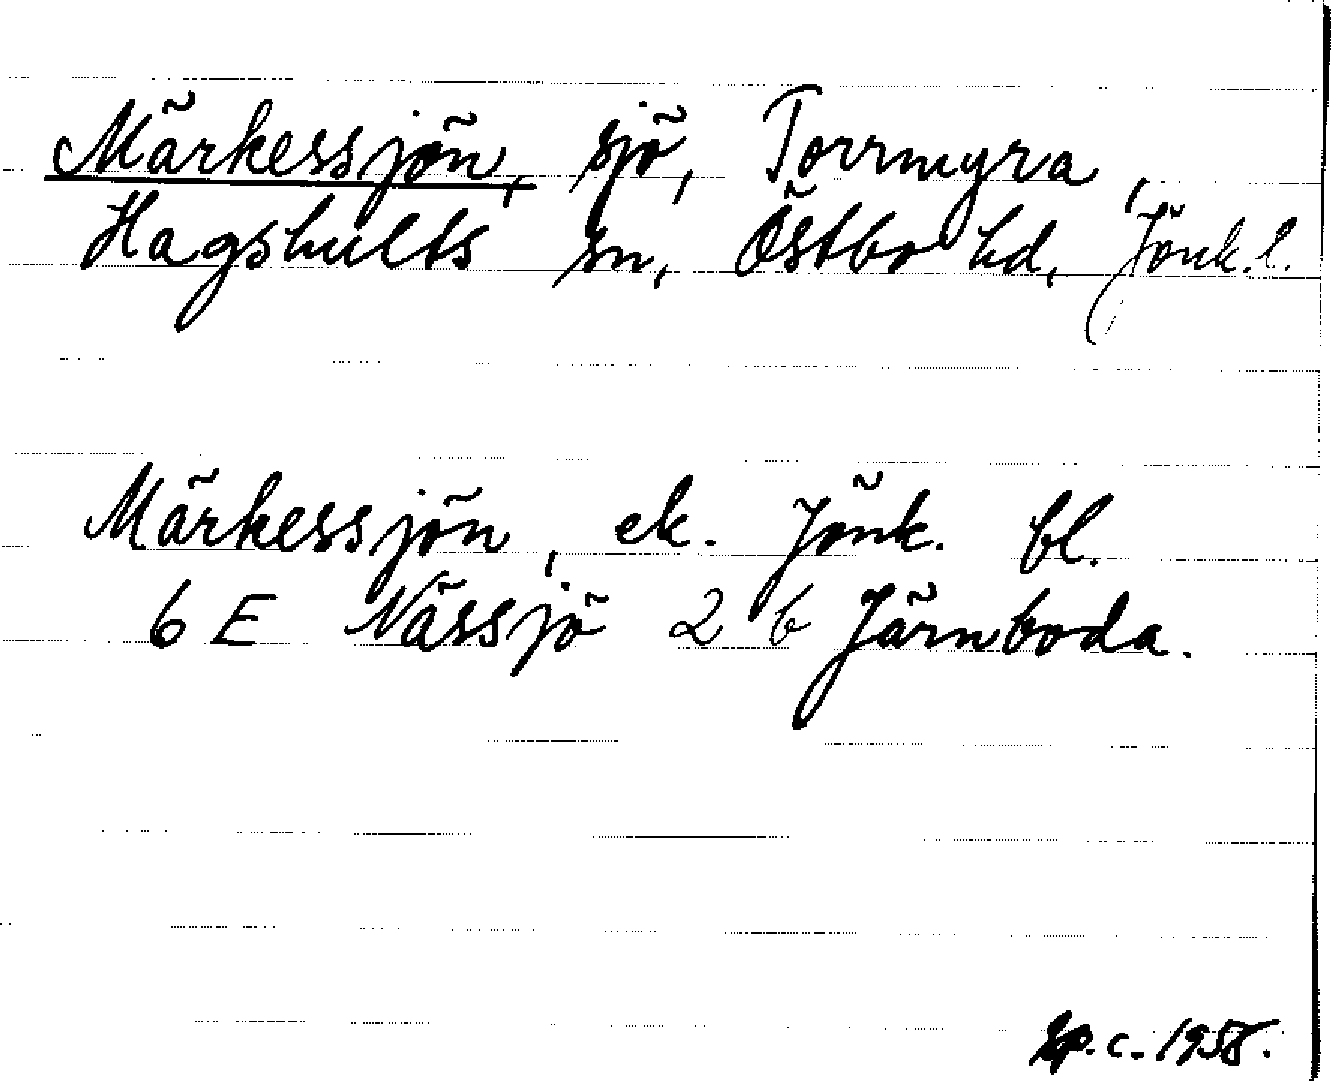 Märkessjön, sjö, Torrmyra,
Hagshults sn, Östbo hd, Jönk. l.
Märkessjön, ek. Jönk. bl.
6 E Nässjö 2 b Järnboda.
c. 1958.